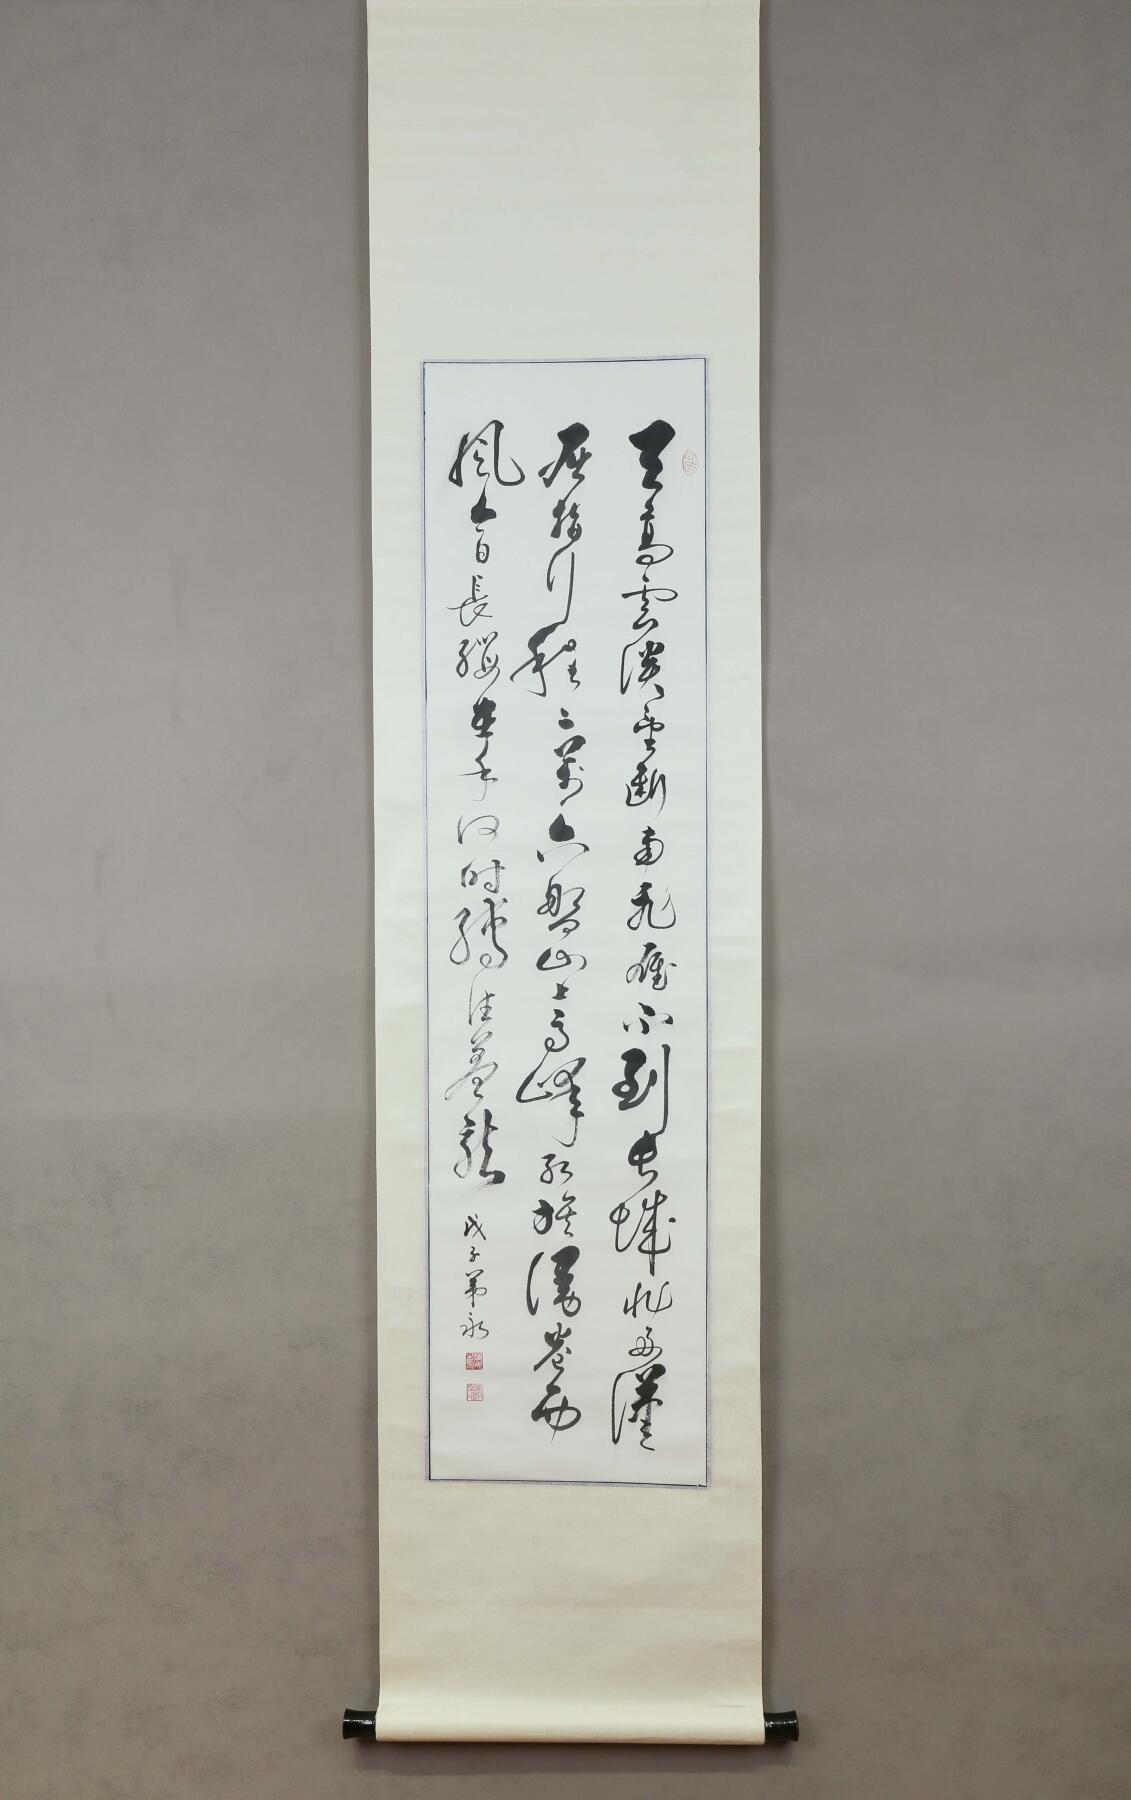 天高雲淡望断南飛雁不到长城非好漢
屈指行程二萬六盤山上高峰红旗漫卷西
風今日長缨在手何时縛住蒼龍
戊子 永